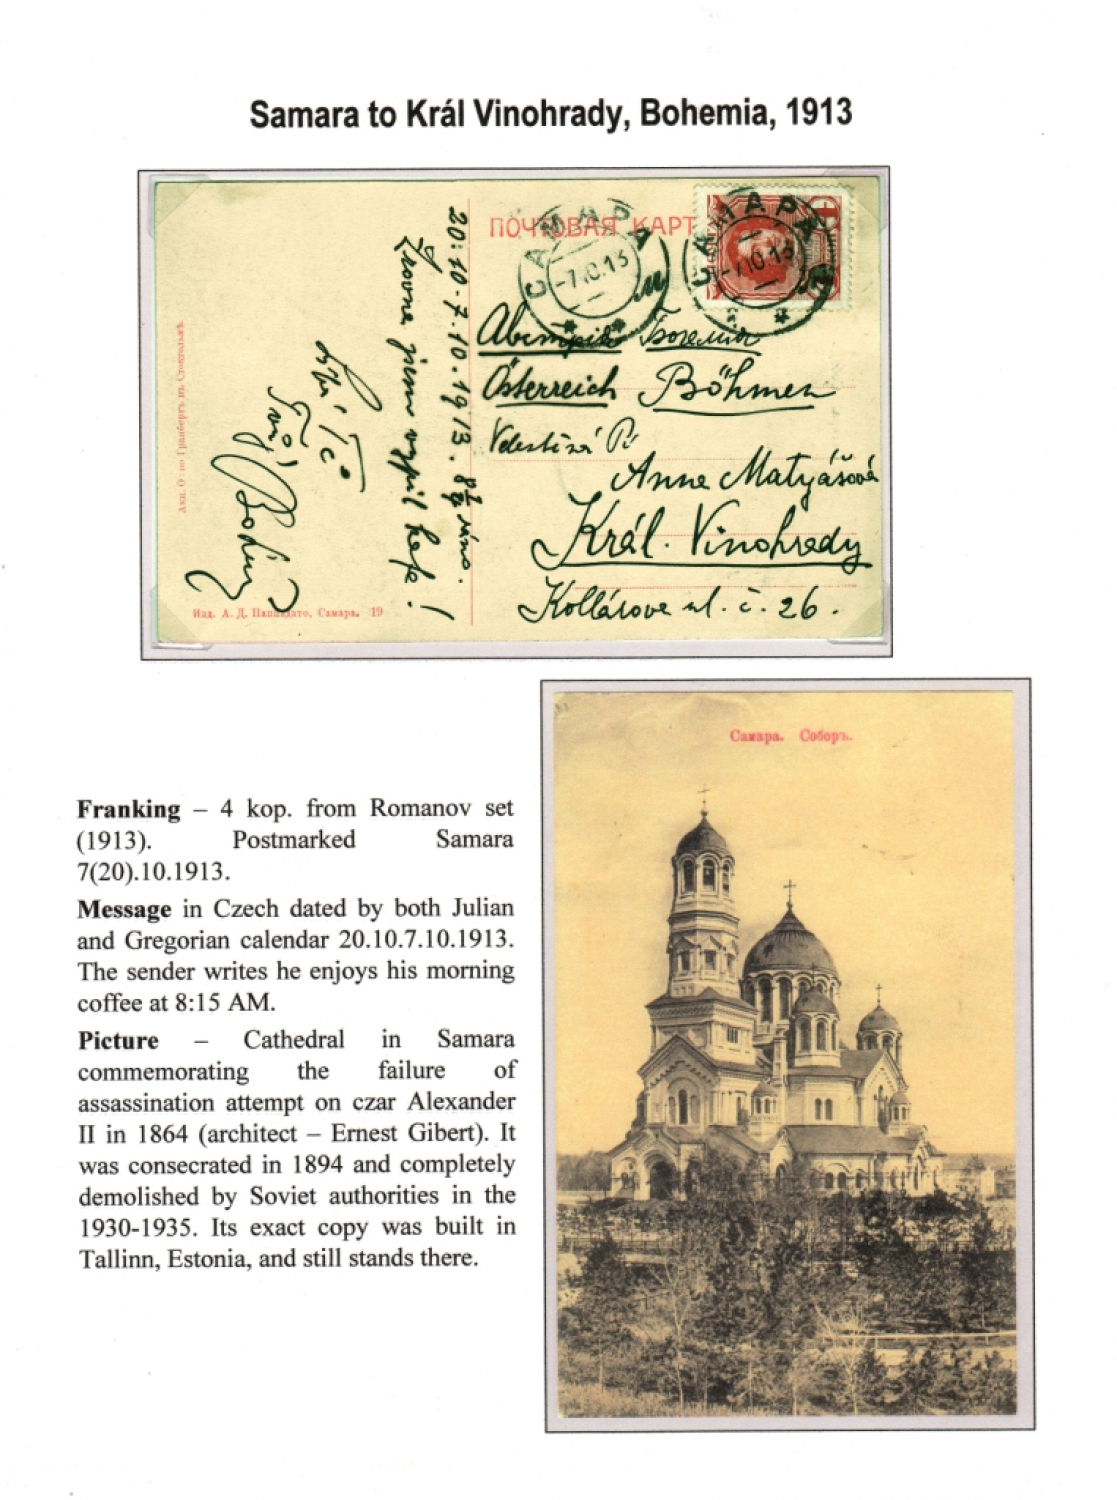 Samara to Král Vinohrady, Bohemia, 1913
ПОЧТОВАЯ КАРТ
САМАРА
-7.10.13
САМАРА
-7.10.13
Австрия Богемия
Österreich Böhmen
Anna Matyášová
Král. Vinohrady
Kollárova ul. č. 26.
20.10-7.10.1913. 8 1/4 ráno.
Zrovna jsem vypil kafe!
Tvůj
Акц. О-во Гранбергъ въ Стокгольмѣ.
Изд. А. Д. Пападато, Самара. 19
Самара. Соборъ.
Franking – 4 kop. from Romanov set
(1913). Postmarked Samara
7(20).10.1913.
Message in Czech dated by both Julian
and Gregorian calendar 20.10.7.10.1913.
The sender writes he enjoys his morning
coffee at 8:15 AM.
Picture – Cathedral in Samara
commemorating the failure of
assassination attempt on czar Alexander
II in 1864 (architect – Ernest Gibert). It
was consecrated in 1894 and completely
demolished by Soviet authorities in the
1930-1935. Its exact copy was built in
Tallinn, Estonia, and still stands there.